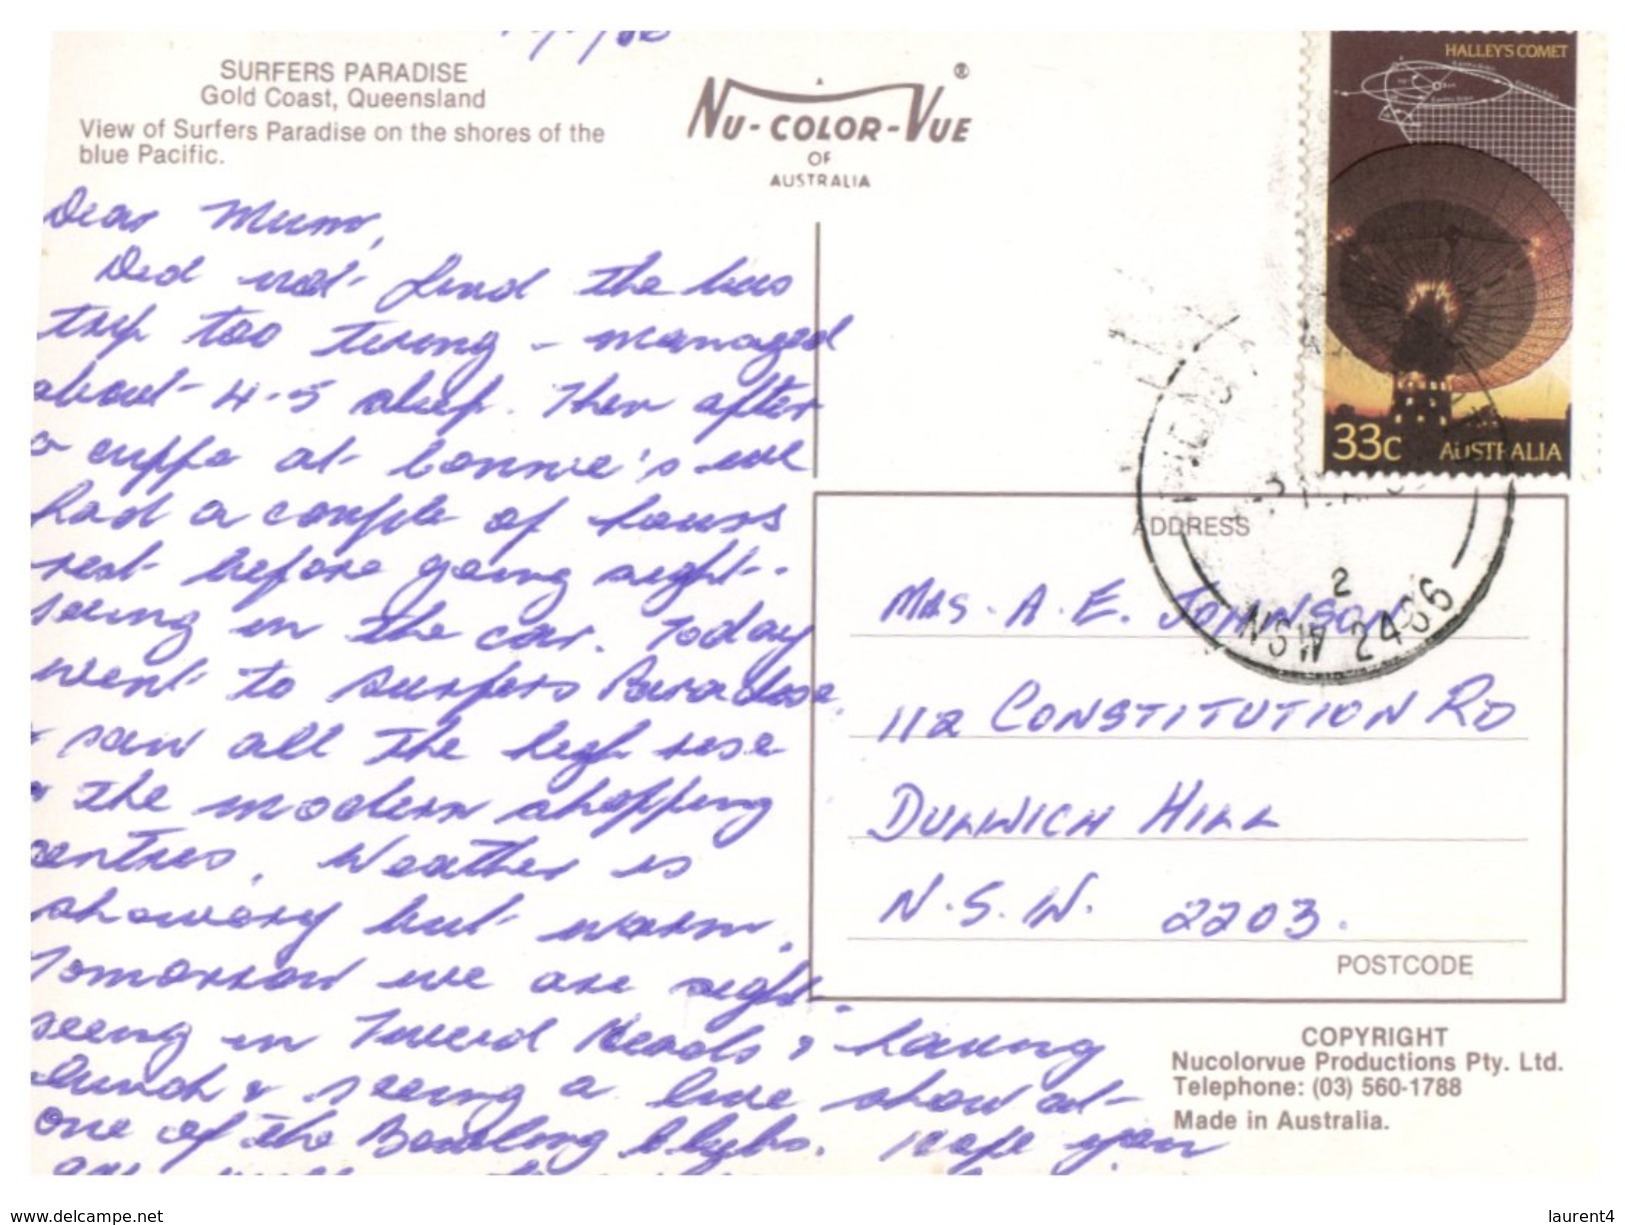 SURFERS PARADISE
Gold Coast, Queensland
View of Surfers Paradise on the shores of the
blue Pacific.
NU-COLOR-VUE ®
OF
AUSTRALIA
HALLEY'S COMET
33c AUSTRALIA
Dear Mum,
Did not find the bus
trip too tiring - managed
about 4-5 sleep. Then after
a cuppa at Connie's we
had a couple of hours
rest before going sight-
seeing in the car. Today
went to Surfers Paradise
& saw all the high rise
& the modern shopping
centres. Weather is
showery but warm.
Tomorrow we are sight-
seeing in Tweed Heads & having
lunch & seeing a live show at
one of the Bowling Clubs. Hope you
ADDRESS
MRS. A. E. JOHNSON
112 CONSTITUTION RD
DULWICH HILL
N.S.W. 2203.
POSTCODE
2
NSW 2486
COPYRIGHT
Nucolorvue Productions Pty. Ltd.
Telephone: (03) 560-1788
Made in Australia.
www.delcampe.net
laurent4